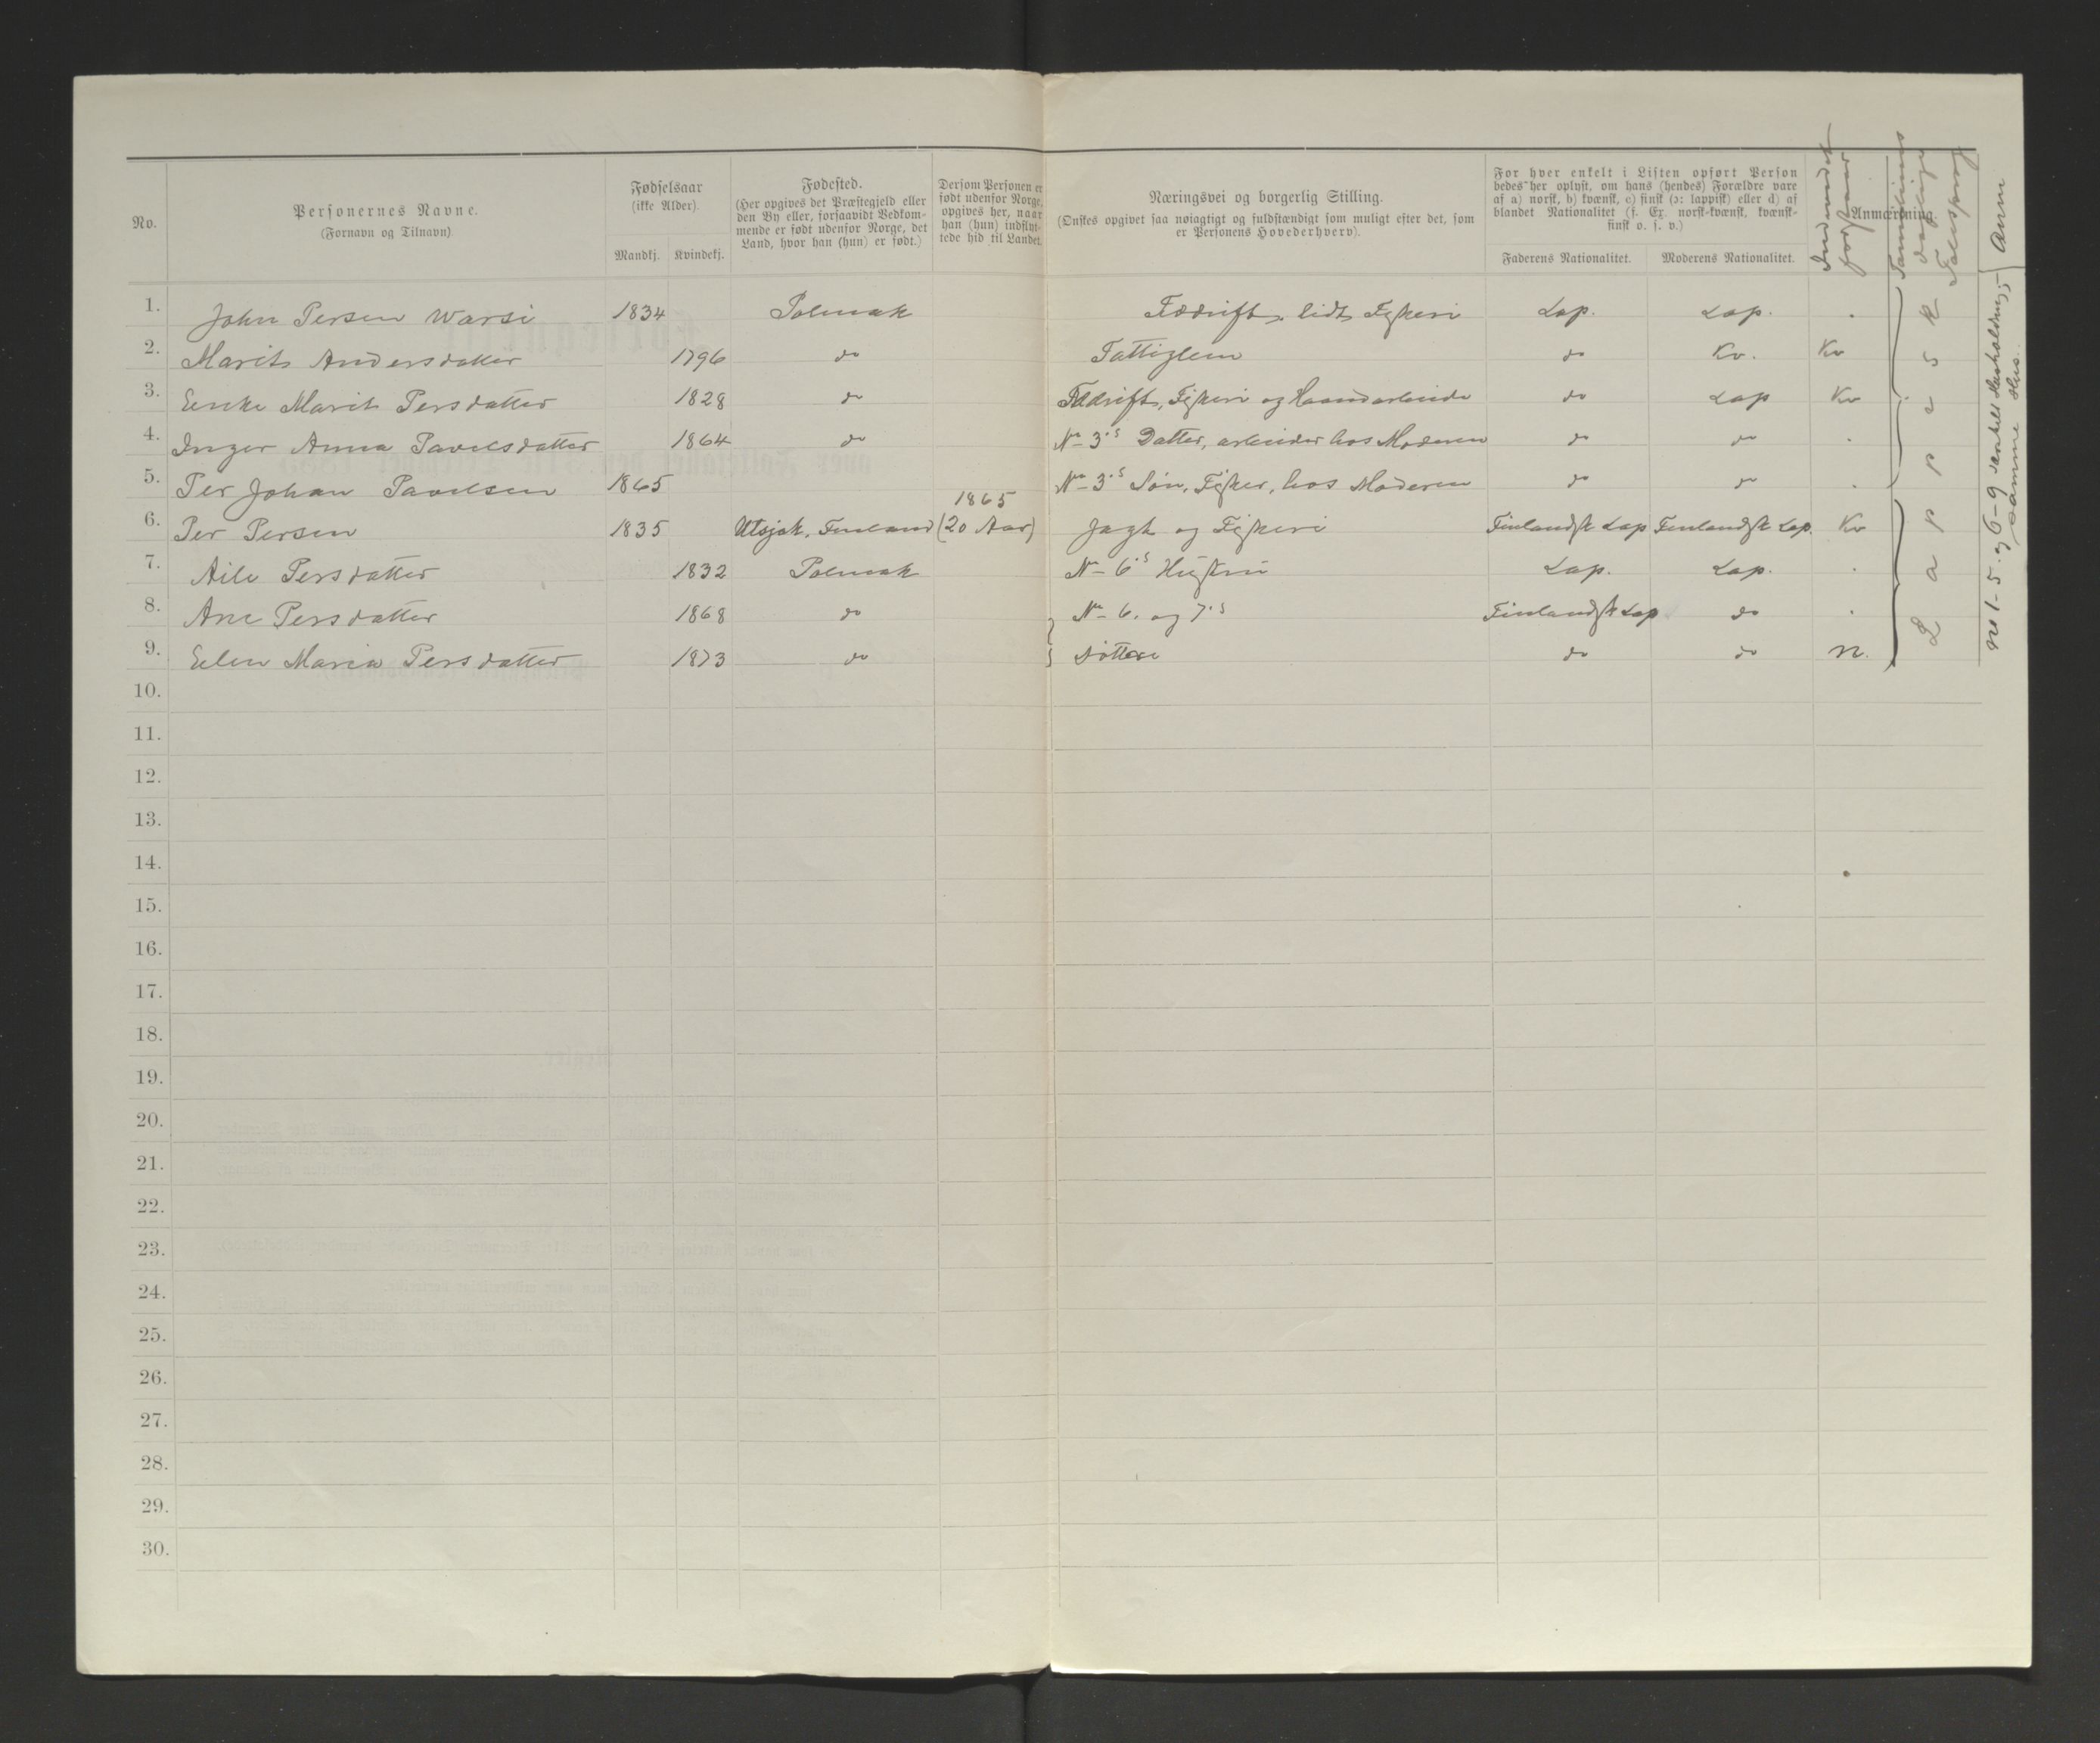 No.
Personernes Navne.
(Fornavn og Tilnavn)
Fødselsaar
(ikke Alder).
Mandkj. Kvindekj.
Fødested.
(Her opgives det Præstegjeld eller
den By eller, forsaavidt Vedkom-
mende er født udenfor Norge, det
Land, hvor han (hun) er født.)
Dersom Personen er
født udenfor Norge,
opgives her, naar
han (hun) indflyt-
tede hid til Landet.
Næringsvei og borgerlig Stilling.
(Ønskes opgivet saa nøiagtigt og fuldstændigt som muligt efter det, som
er Personens Hovederhverv).
For hver enkelt i Listen opført Person
bedes her oplyst, om hans (hendes) Forældre vare
af a) norsk, b) kvænsk, c) finsk (ɔ: lappisk) eller d) af
blandet Nationalitet (f. Ex. norsk-kvænsk, kvænsk-
finsk o. s. v.)
Faderens Nationalitet. Moderens Nationalitet.
Anmærkning.
forstaar
daglige
Talesprog
1. John Persen Warsi 1834 Polmak Fædrift, lidt Fiskeri Lap. Lap. .
2. Marit Andersdatter 1796 do Fattiglem do Kv. Kv
3. Marit Persdatter 1828 do Fædrift, Fiskeri og Haandarbeide do Lap Kv
4. Inger Anna Pavelsdatter 1864 do No 3's Datter, arbeider hos Moderen do do .
5. Per Johan Pavelsen 1865 No 3's Søn, Fisker, hos Moderen do do .
6. Per Persen 1835 Utsjok, Finland 1865 (20 Aar) Jagt og Fiskeri Finlandsk Lap Finlandsk Lap. Kv
7. Aile Persdatter 1832 Polmak No 6's Hustru Lap. Lap. .
8. Ane Persdatter 1868 do No 6. og 7's Finlandsk Lap do .
9. Elen Maria Persdatter 1873 do Døttre do do N.
Lappisk
No 1-5 og 6-9 særskilt Husholdning; samme Hus.
Anm
10.
11.
12.
13.
14.
15.
16.
17.
18.
19.
20.
21.
22.
23.
24.
25.
26.
27.
28.
29.
30.